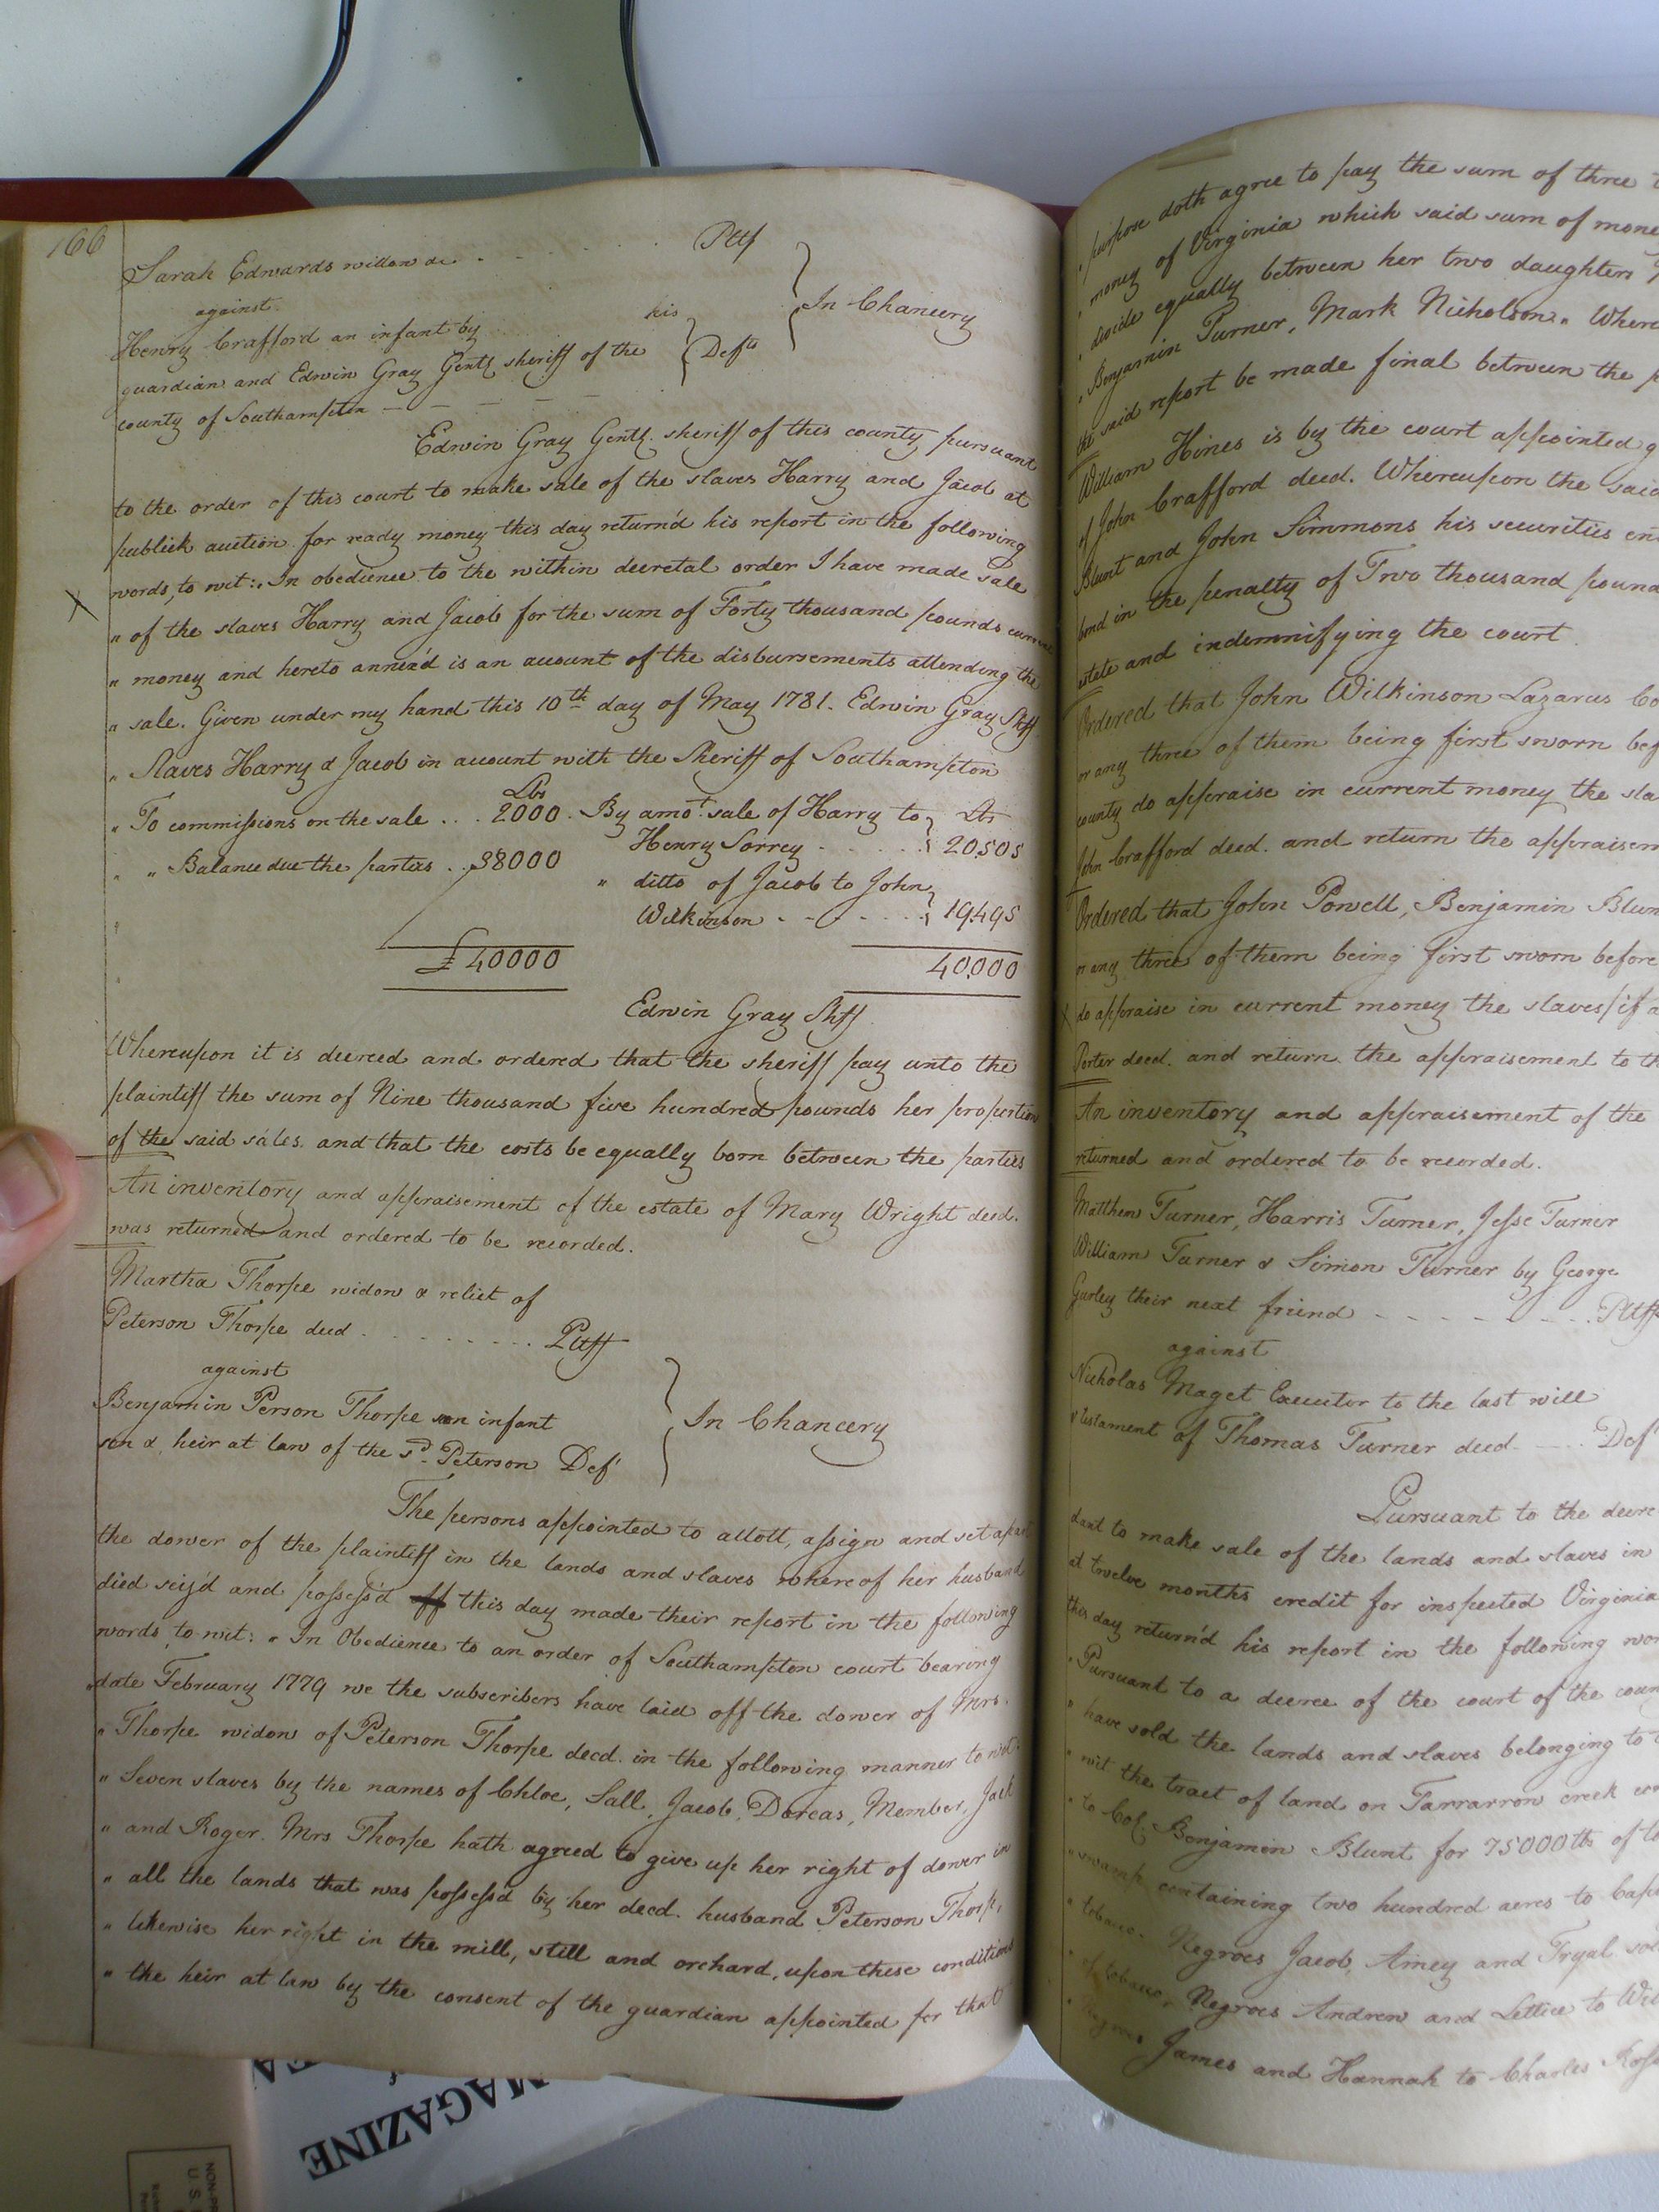 166
Sarah Edwards widow &c . . . . . Pltf
against
Henry Crafford an infant by his
guardian and Edwin Gray Gentl. sheriff of the } Defts
county of Southampton — — — — —
In Chancery
Edwin Gray Gentl. sheriff of this county pursuant
to the order of this court to make sale of the slaves Harry and Jacob at
publick auction for ready money this day return'd his report in the following
words, to wit: "In obedience to the within decretal order I have made sale
" of the slaves Harry and Jacob for the sum of Forty thousand pounds current
" money and hereto annex'd is an account of the disbursements attending the
" sale. Given under my hand this 10th day of May 1781. Edwin Gray Shff
" Slaves Harry & Jacob in account with the Sheriff of Southampton
" To commissions on the sale . . . Lbs 2000. By amot. sale of Harry to } Lbs
Henry Sorrey . . . . . . } 20.505
" " Balance due the parties . . 38000
" ditto of Jacob to John }
Wilkinson . . . . . . } 19.495
£ 40000 40.000
Edwin Gray Shff
Whereupon it is decreed and ordered that the sheriff pay unto the
plaintiff the sum of Nine thousand five hundred pounds her proportion
of the said sales. and that the costs be equally born between the parties
An inventory and appraisement of the estate of Mary Wright decd.
was returned and ordered to be recorded.
Martha Thorpe widow & relict of
Peterson Thorpe decd . . . . . . . . Pltff
against
Benjamin Person Thorpe an infant
son & heir at law of the sd. Peterson Deft
In Chancery
The persons appointed to allott, assign and set apart
the dower of the plaintiff in the lands and slaves whereof her husband
died seiz'd and possess'd this day made their report in the following
words, to wit: "In Obedience to an order of Southampton court bearing
" date February 1779 we the subscribers have laid off the dower of Mrs.
" Thorpe widow of Peterson Thorpe decd. in the following manner to wit:
" Seven slaves by the names of Chloe, Sall, Jacob, Dorcas, Member, Jack
" and Roger. Mrs Thorpe hath agreed to give up her right of dower in
" all the lands that was possess'd by her decd. husband Peterson Thorpe,
" likewise her right in the mill, still and orchard, upon these conditions
" the heir at law by the consent of the guardian appointed for that
" purpose doth agree to pay the sum of three
" money of Virginia which said sum of mone
" divide equally between her two daughters
" Benjamin Turner, Mark Nicholson" Where
the said report be made final between the
William Hines is by the court appointed g
of John Crafford decd. Whereupon the said
Blunt and John Simmons his securities en
bond in the penalty of Two thousand pound
estate and indemnifying the court.
Ordered that John Wilkinson Lazarus Co
or any three of them being first sworn bef
county do appraise in current money the sla
John Crafford decd. and return the appraisem
Ordered that John Powell, Benjamin Blun
or any three of them being first sworn before
do appraise in current money the slaves (if a
Porter decd. and return the appraisement to th
An inventory and appraisement of the
returned and ordered to be recorded.
Matthew Turner, Harris Turner, Jesse Turner
William Turner & Simon Turner by George
Gurley their next friend - - - - - - Pltff
against
Nicholas Maget Executor to the last will
& testament of Thomas Turner decd. - - Def
Pursuant to the decre
dant to make sale of the lands and slaves in
at twelve months credit for inspected Virginia
this day return'd his report in the following wor
" Pursuant to a decree of the court of the coun
" have sold the lands and slaves belonging to
" wit the tract of land on Tarrarrow creek
" to Col. Benjamin Blunt for 75000lb of to
" swamp containing two hundred acres to Cap
" tobacco. Negroes Jacob, Amey and Tryal sol
" of tobacco, Negroes Andrew and Lettice to Wil
" Negroes James and Hannah to Charles
MAGAZINE
NON-PR
U.S.